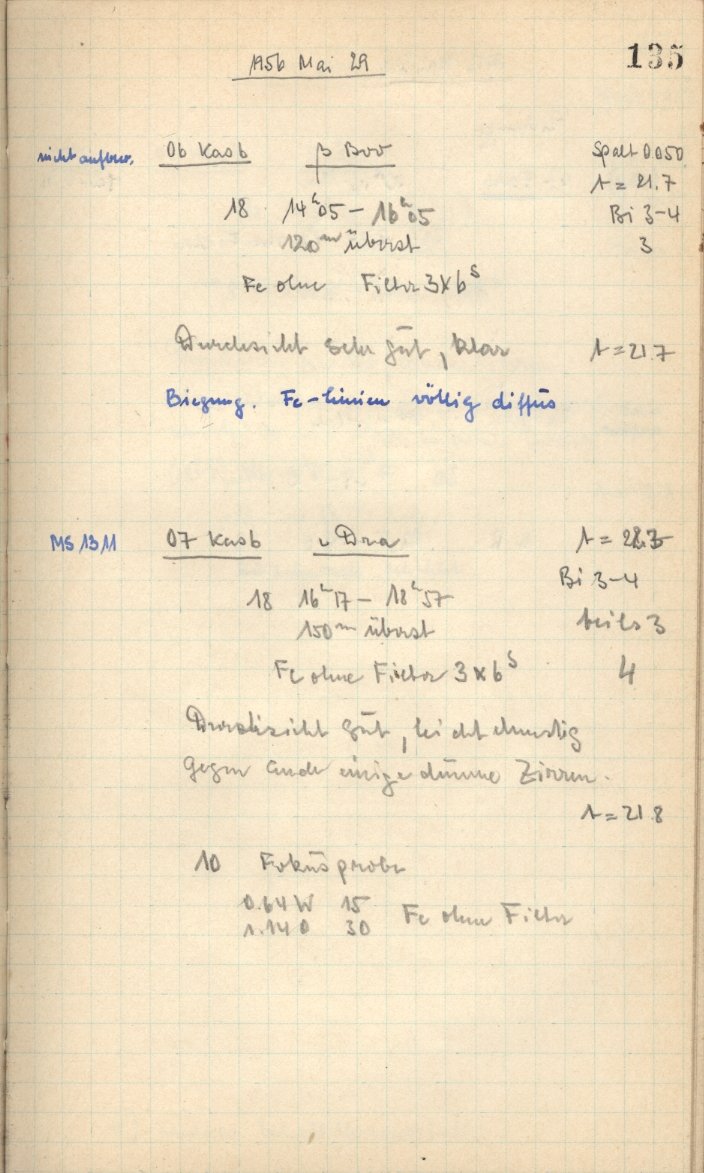 135
1956 Mai 29
nicht aufbew. 06 Kasb β Boo Spalt 0.050
t = 21.7
18 14ʰ05 – 16ʰ05 Bi 3-4
120ᵐ überst 3
Fe ohne Filter 3x6ˢ
Durchsicht sehr gut, klar t = 21.7
Biegung. Fe-Linien völlig diffus
MS 1311 07 Kasb ι Dra t =
Bi 3-4
18 16ʰ17 – 18ʰ57
150ᵐ überst teils 3
Fe ohne Filter 3x6ˢ 4
Durchsicht gut, leicht dunstig
Gegen Ende einige dünne Zirren.
t = 21.8
10 Fokusprobe
0.64 W 15
Fe ohne Filter
1.14 O 30